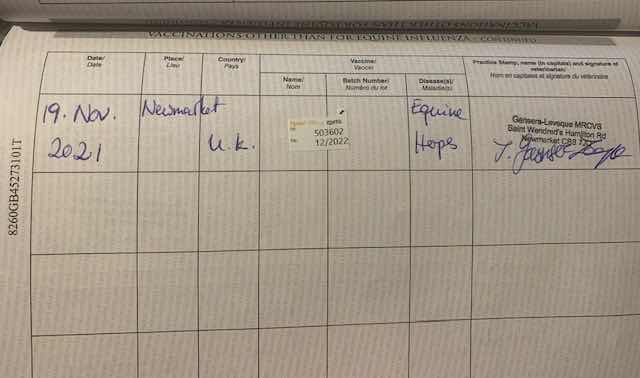 VACCINATIONS OTHER THAN FOR EQUINE INFLUENZA - CONTINUED
Date/ Place/ Country/ Vaccine/ Practice Stamp, name (in capitals) and signature of
Date Lieu Pays Vaccin veterinarian:
Nom en capitales et signature du vétérinaire
Name/ Batch Number/ Disease(s)/
Nom Numéro du lot Maladie(s)
19. Nov. Newmarket Equine
2021 U.K. Herps
503602
12/2022
Gensera-Levesque MRCVS
Saint Wendred's Hamilton Rd
Newmarket CB8
8260GB45273101T